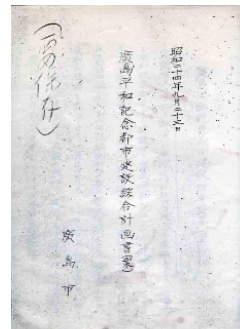 昭和二十四年九月二十六日
廣島平和記念都市建設綜合計画書(案)
廣島市